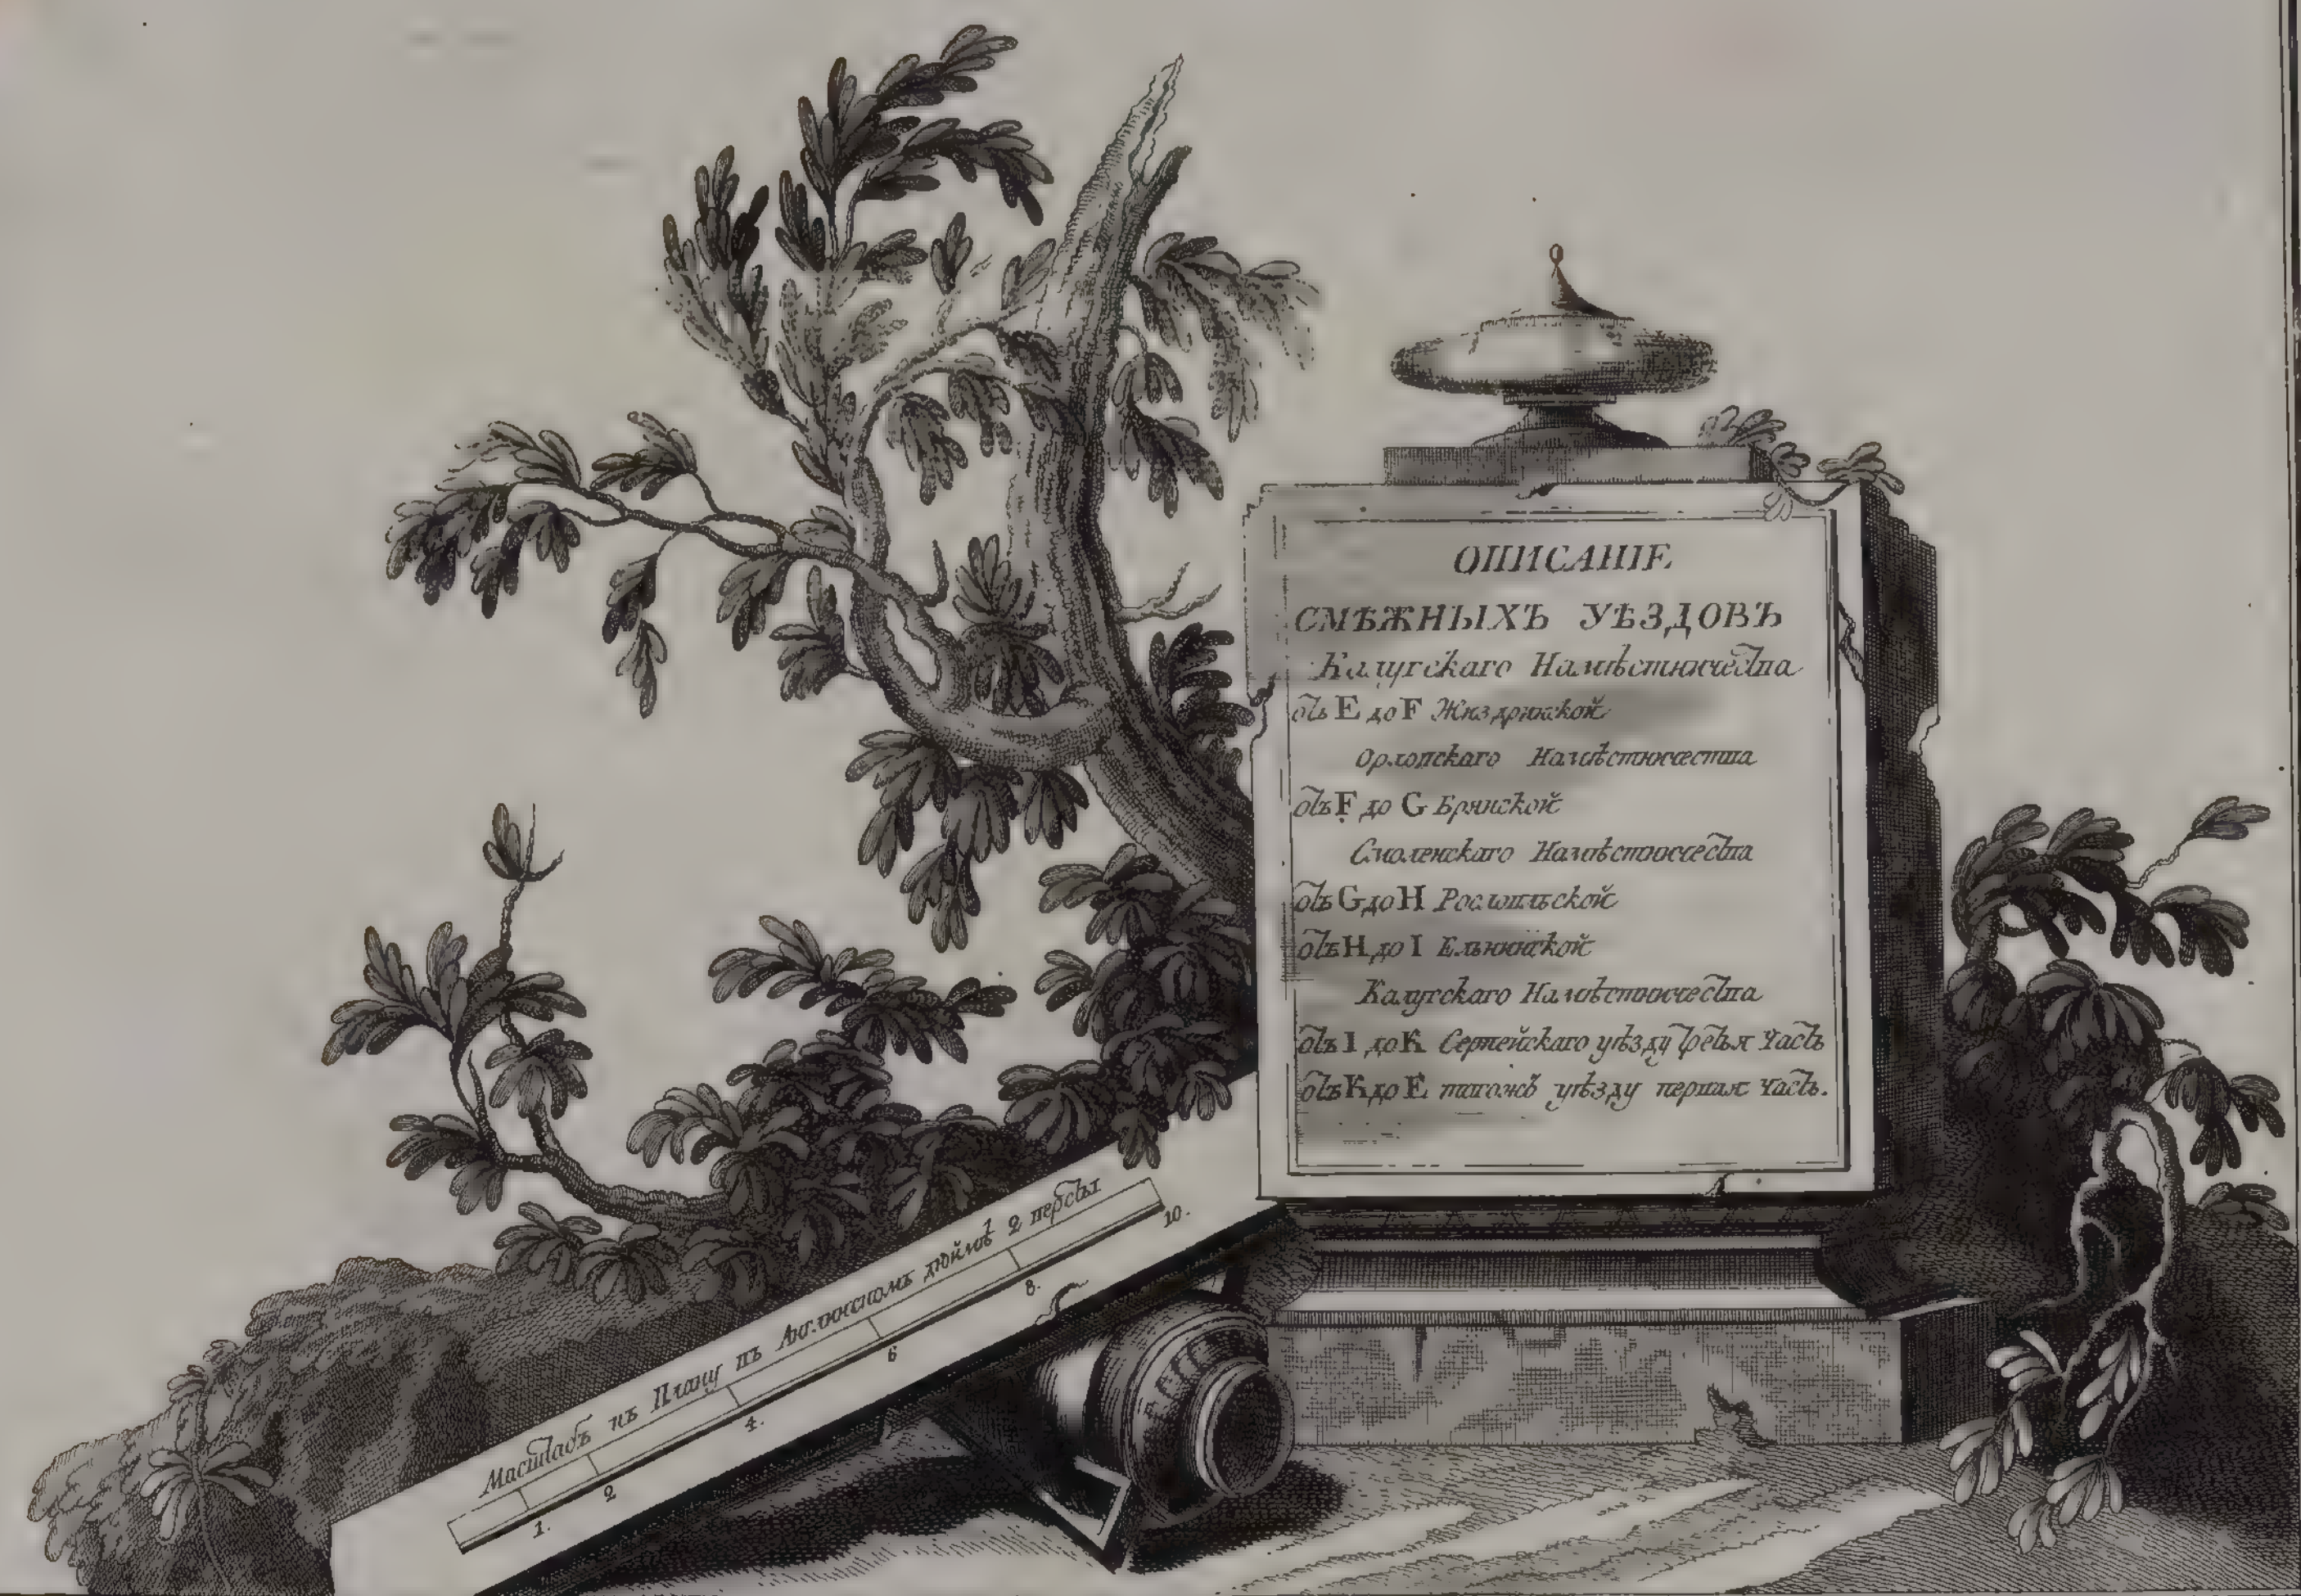 ОПИСАНІЕ
СМѢЖНЫХЪ УѢЗДОВЪ
Калугскаго Намѣстничества
отъ E до F Жиздринской
Орловскаго Намѣстничества
отъ F до G Брянской
Смоленскаго Намѣстничества
отъ G до H Рославльской
отъ H до I Ельнинской
Калугскаго Намѣстничества
отъ I до K Серпейскаго уѣзду третья часть
отъ K до E тогожъ уѣзду первая часть.
Масштабъ къ Плану въ Англинскомъ дюймѣ 2 версты
1. 2 4. 6 8. 10.